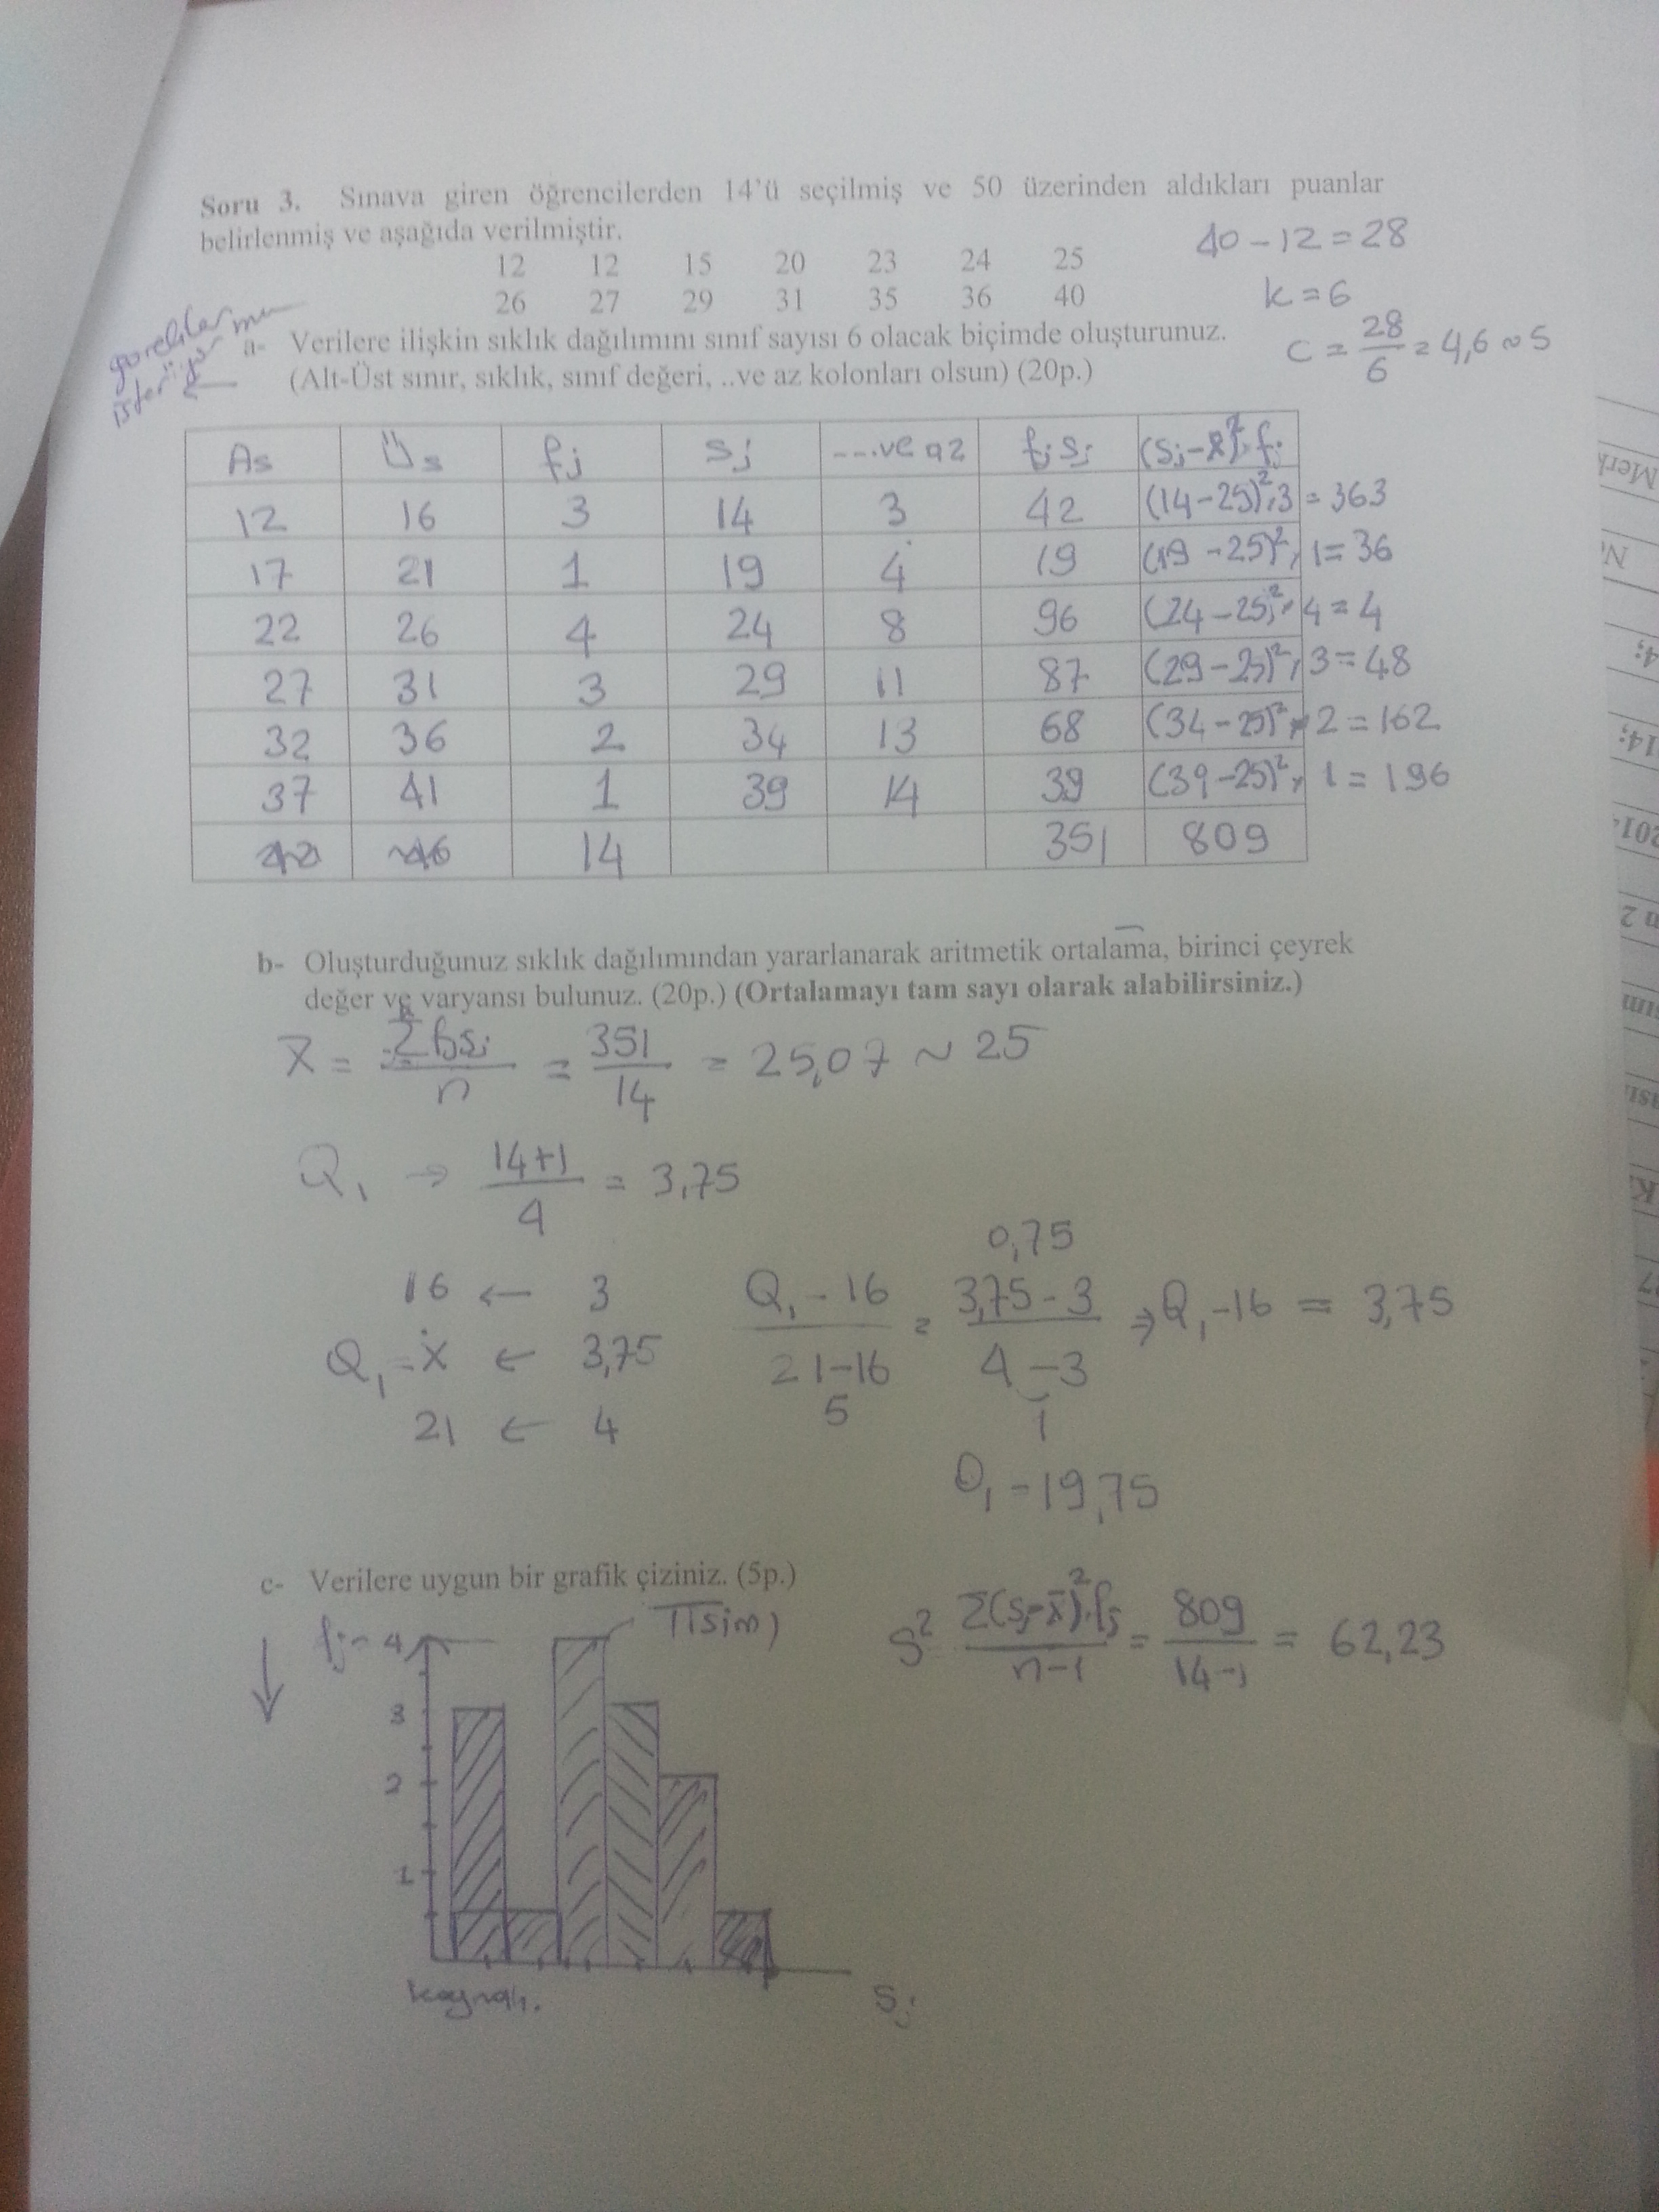 Soru 3. Sınava giren öğrencilerden 14'ü seçilmiş ve 50 üzerinden aldıkları puanlar
belirlenmiş ve aşağıda verilmiştir.
40 - 12 = 28
12 12 15 20 23 24 25
26 27 29 31 35 36 40
k = 6
C = 28/6 = 4,6 ~ 5
a- Verilere ilişkin sıklık dağılımını sınıf sayısı 6 olacak biçimde oluşturunuz.
(Alt-Üst sınır, sıklık, sınıf değeri, ..ve az kolonları olsun) (20p.)
As Üs fj Sj ....ve az fjSj (Sj-x̄)².fj
12 16 3 14 3 42 (14-25)².3 = 363
17 21 1 19 4 19 (19-25)².1 = 36
22 26 4 24 8 96 (24-25)².4 = 4
27 31 3 29 11 87 (29-25)².3 = 48
32 36 2 34 13 68 (34-25)².2 = 162
37 41 1 39 14 39 (39-25)².1 = 196
42 46 14 351 809
b- Oluşturduğunuz sıklık dağılımından yararlanarak aritmetik ortalama, birinci çeyrek
değer ve varyansı bulunuz. (20p.) (Ortalamayı tam sayı olarak alabilirsiniz.)
x̄ = Σfjsj/n = 351/14 = 25,07 ~ 25
Q1 → 14+1/4 = 3,75
16 ← 3
Q1 = x ← 3,75
21 ← 4
Q1 - 16 / 21-16 = 3,75 - 3 / 4 - 3 ⇒ Q1 - 16 = 3,75
0,75
5
1
Q1 = 19,75
c- Verilere uygun bir grafik çiziniz. (5p.)
S² Σ(sj-x̄)².fj / n-1 = 809/14-1 = 62,23
fj
4
3
2
1
Sj